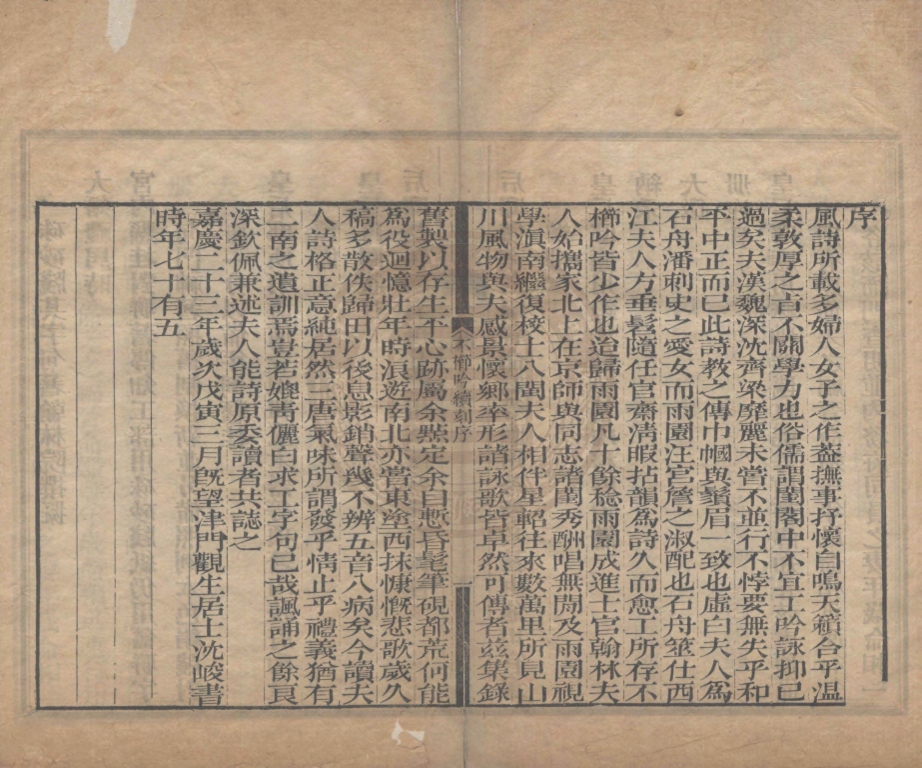 序
風詩所載多婦人女子之作葢撫事抒懷自鳴天籟合乎温
柔敦厚之㫖不關學力也俗儒謂閨閣中不宜工吟詠抑已
過矣夫漢魏深沈齊梁靡麗未嘗不並行不悖要無失乎和
平中正而已此詩教之傳巾幗與鬚眉一致也虚白夫人爲
石舟潘刺史之愛女而雨園汪宮詹之淑配也石舟筮仕西
江夫人方垂髫隨任官齋清暇拈韻爲詩久而愈工所存不
櫛吟皆少作也迨歸雨園凡十餘稔雨園成進士官翰林夫
人始攜家北上在京師與同志諸閨秀酬唱無間及雨園視
學滇南繼復校士八閩夫人相伴星軺往來數萬里所見山
川風物與夫感景懷鄉率形諸詠歌皆卓然可傳者兹集録
不櫛吟續刻序
舊製以存生平心跡屬余㸃定余自慙昏髦筆硯都荒何能
爲役迴憶壯年時浪遊南北亦嘗東塗西抹慷慨悲歌歲久
稿多散佚歸田以後息影銷聲幾不辨五音八病矣今讀夫
人詩格正意純居然三唐氣味所謂發乎情止乎禮義猶有
二南之遺訓焉豈若媲青儷白求工字句已哉諷誦之餘良
深欽佩兼述夫人能詩原委讀者共誌之
嘉慶二十三年歲次戊寅三月旣望津門觀生居士沈峻書
時年七十有五